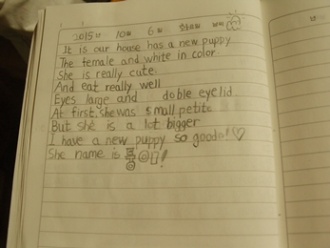 2015년 10월 6일 화요일
It is our house has a new puppy
The female and white in color
She is really cute.
And eat really well
Eyes large and doble eyelid
At first, she was small petite
But she is a lot bigger
I have a new puppy so good!♡
She name is